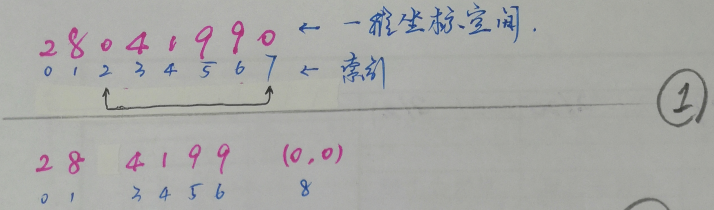 2 8 0 4 1 9 9 0 ← 一维坐标空间.
0 1 2 3 4 5 6 7 ← 索引
1
2 8 4 1 9 9 (0,0)
0 1 3 4 5 6 8